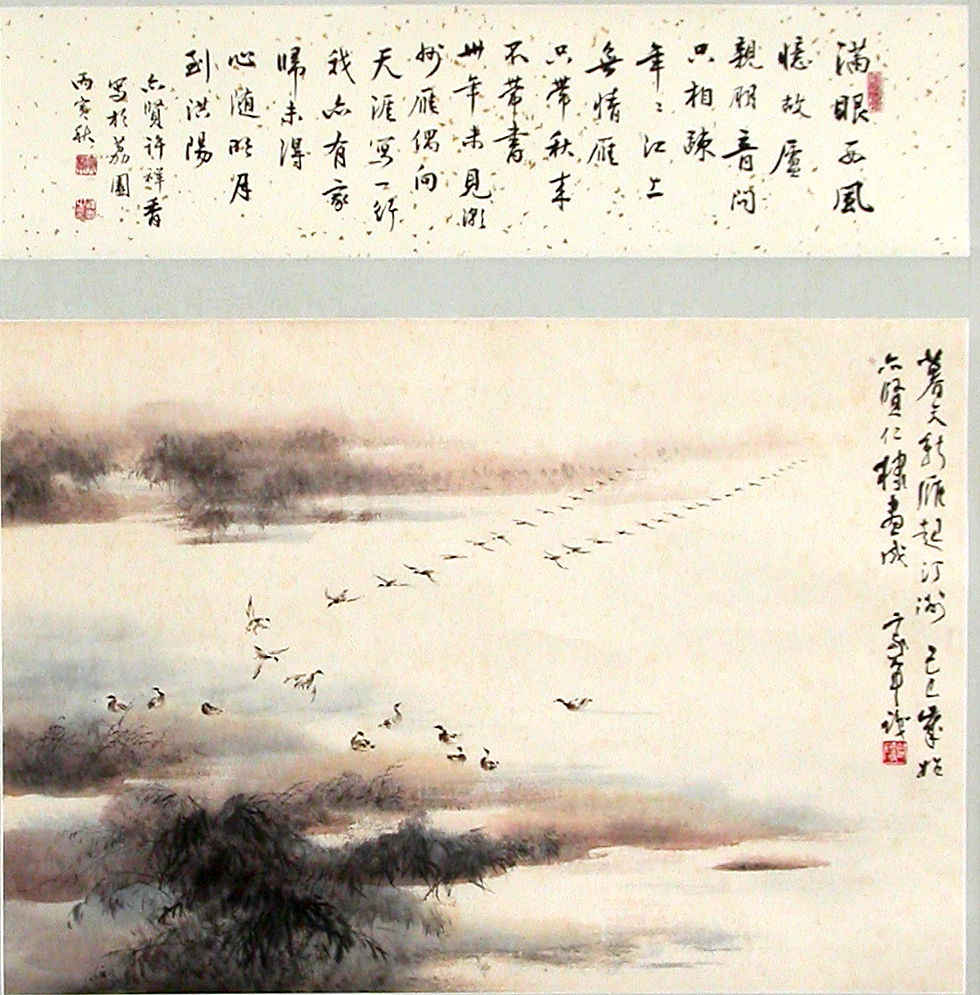 满眼西風
憶故廬
親朋音問
只相疎
年〻江上
無情雁
只带秋来
不带書
卅年未見潮
州雁偶向
天涯寫一行
我亦有家
歸未得
心随明月
到洪陽
六賢許祥香
寫於荔園
丙寅秋
暮天新雁起汀洲 己巳歲始
六賢仁棣畫成